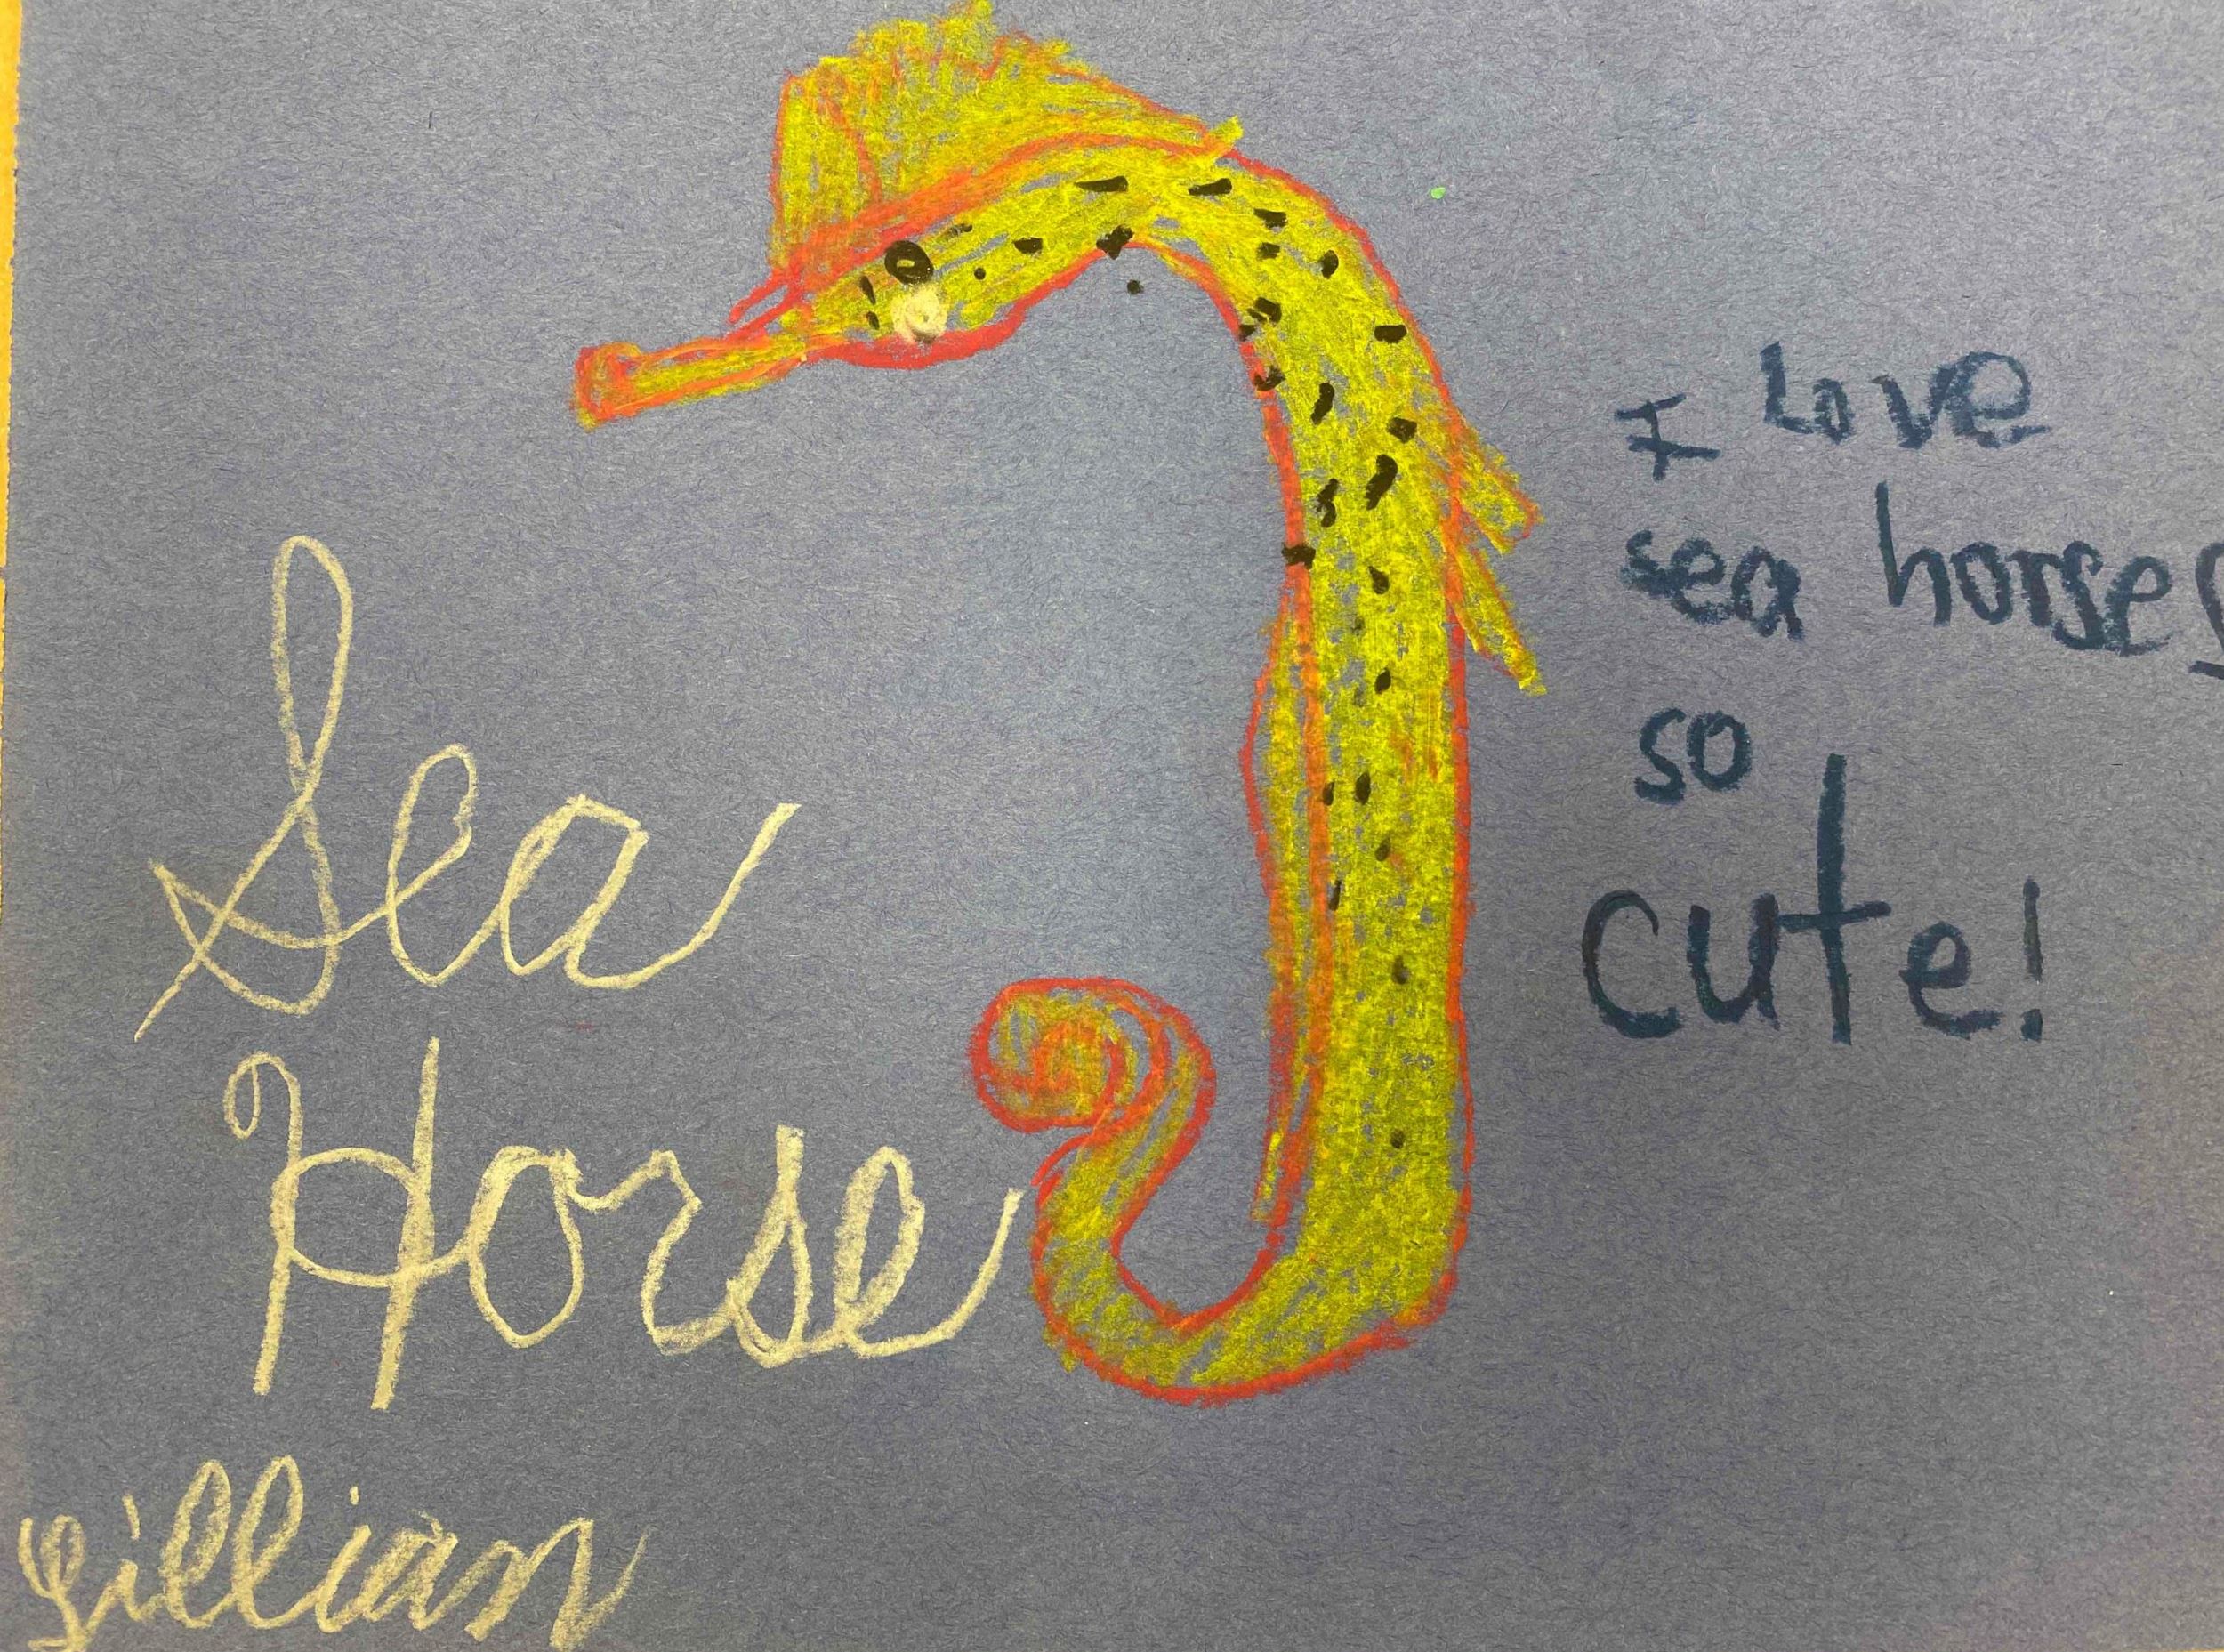 Sea
Horse
Lillian
I Love
sea horses
so
cute!